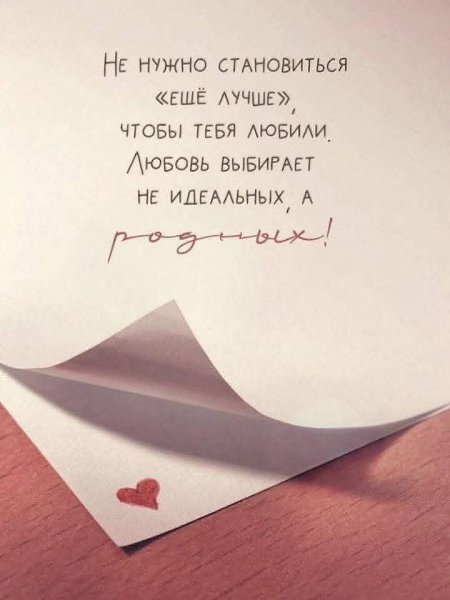 Не нужно становиться
«ещё лучше»,
чтобы тебя любили.
Любовь выбирает
не идеальных, а
родных!